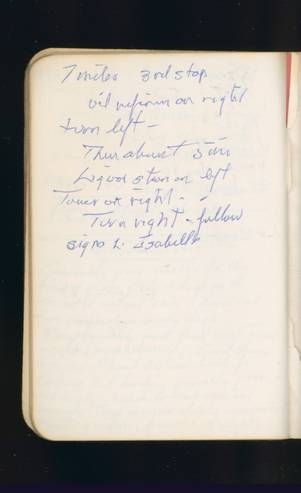 7 miles 3rd stop
oil refinery on right
turn left -
Then about 5 mi
Liquor store on left
Tower on right -
Turn right - follow
signs L. Isabella